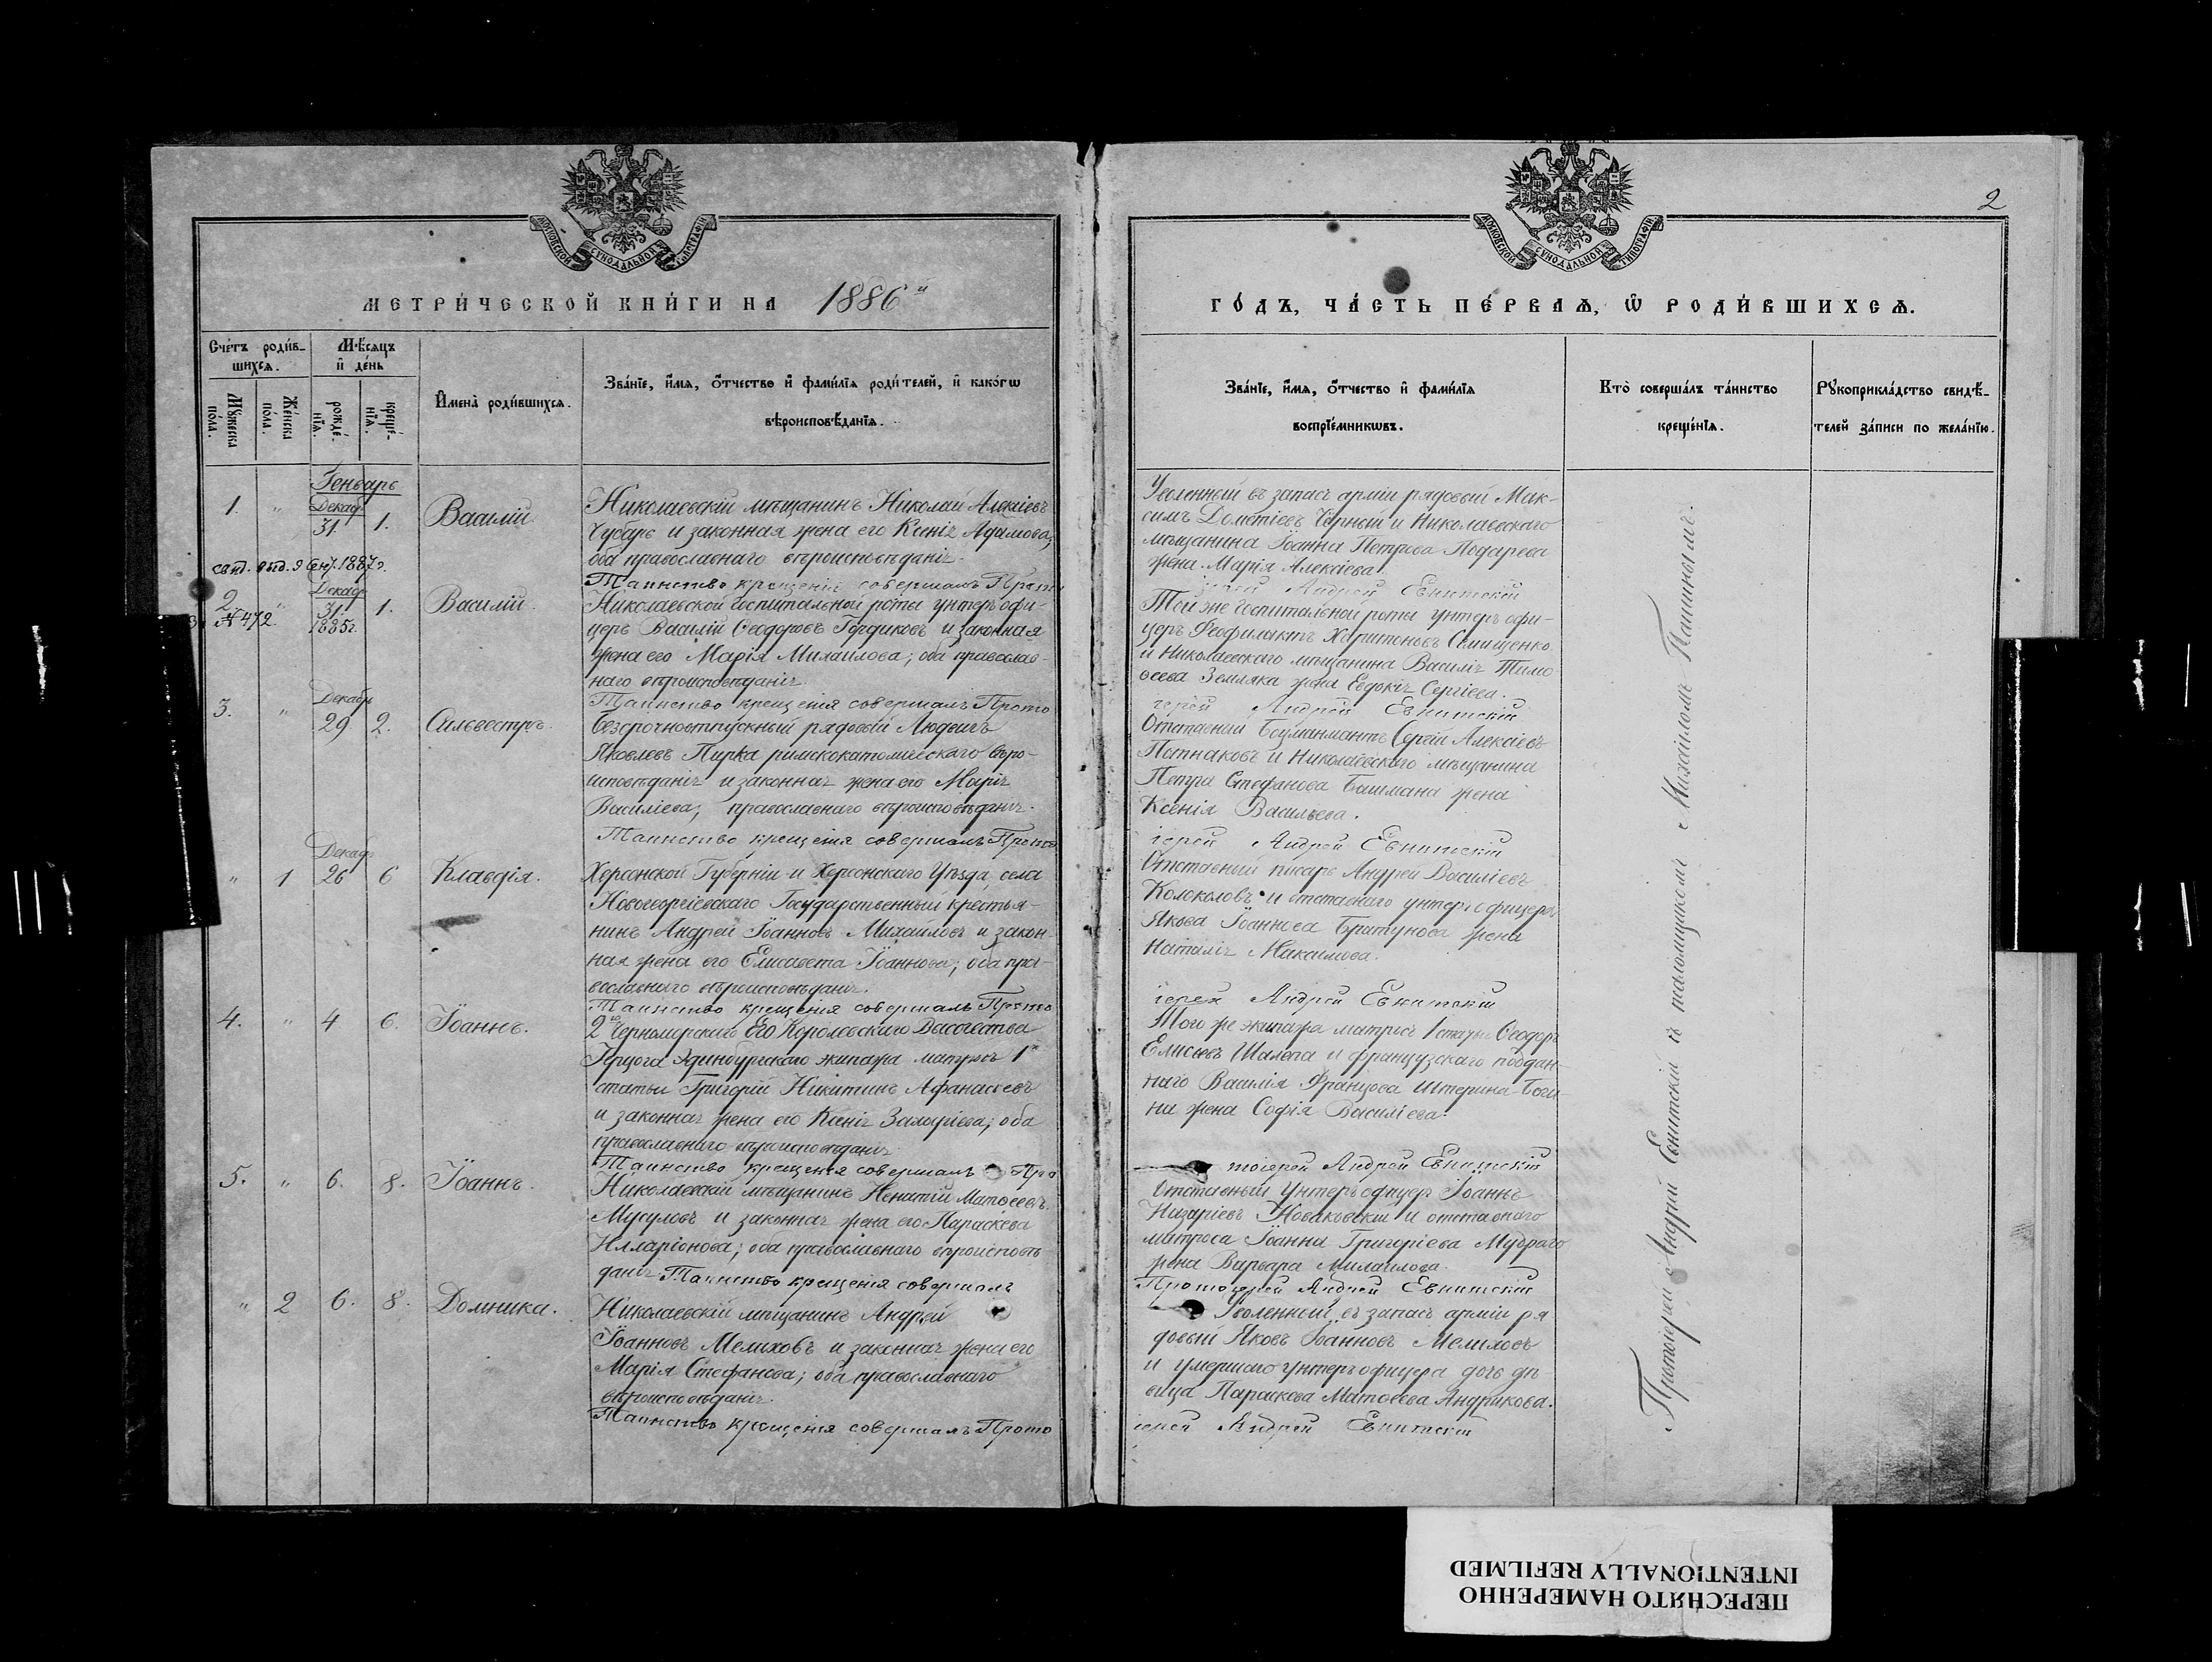 МОСКОВСКОЙ СѴНОДАЛЬНОЙ ТИПОГРАФІИ
МЕТРИ́ЧЕСКОЙ КНИ́ГИ НА 1886й
Сче́тъ роди́в-
шихсѧ.
Мѣ́сѧцъ
и҆ де́нь
Мꙋ́жеска
по́ла.
Же́нска
по́ла.
рожде́-
нїѧ.
креще́-
нїѧ.
И҆мена̀ роди́вшихсѧ.
Зва́нїе, и҆́мѧ, ѻ҆́тчество и҆ фами́лїѧ роди́телей, и҆ како́гѡ
вѣроисповѣ́данїѧ.
Генварь
1. " Декаб. 31. 1. Василій.
Николаевскій мѣщанинъ Николай Алексіевъ
Чубарь и законная жена его Ксенія Адамова;
оба православнаго вѣроисповѣданія.
Таинство крещенія совершалъ Прото
свид. выд. 9 Сен. 1887 г.
№ 472
2. " Декаб. 31. 1885 г. 1. Василій.
Николаевской госпитальной роты унтеръ офи-
церъ Василій Ѳеодоровъ Гордиковъ и законная
жена его Марія Михаилова; оба православ-
наго вѣроисповѣданія.
Таинство крещенія совершалъ Прото
3. " Декабр. 29. 2. Сильвестръ.
Безсрочноотпускный рядовый Людвигъ
Яковлевъ Пирка римскокатолическаго вѣро-
исповѣданія и законная жена его Марія
Василіева, православнаго вѣроисповѣданія.
Таинство крещенія совершалъ Прото
" 1 Декаб. 26 6 Клавдія.
Херсонской Губерніи и Херсонскаго Уѣзда, села
Новогеоргіевскаго Государственный крестья-
нинъ Андрей Іоанновъ Михаиловъ и закон-
ная жена его Елисавета Іоаннова; оба пра-
вославнаго вѣроисповѣданія.
Таинство крещенія совершалъ Прото
4. " 4 6. Іоаннъ.
2го Черноморскаго Его Королевскаго Высочества
Герцога Единбургскаго экипажа матросъ 1й
статьи Григорій Никитинъ Афанасіевъ
и законная жена его Ксенія ; оба
православнаго вѣроисповѣданія.
Таинство крещенія совершалъ Про
5. " 6. 8. Іоаннъ.
Николаевскій мѣщанинъ Игнатій Матѳеевъ
Мусуловъ и законная жена его Параскева
Илларіонова; оба православнаго вѣроисповѣ
данія. Таинство крещенія совершалъ
" 2 6. 8. Домника.
Николаевскій мѣщанинъ Андрей
Іоанновъ Мелиховъ и законная жена его
Марія Стефанова; оба православнаго
вѣроисповѣданія.
Таинство крещенія совершалъ Прото
2
МОСКОВСКОЙ СѴНОДАЛЬНОЙ ТИПОГРАФІИ
ГО́ДЪ, ЧА́СТЬ ПЕ́РВАѦ, Ѡ҆ РОДИ́ВШИХСѦ.
Зва́нїе, и҆́мѧ, ѻ҆́тчество и҆ фами́лїѧ
воспрїе́мникѡвъ.
Кто̀ соверша́лъ та́инство
креще́нїѧ.
Рꙋкоприкла́дство свидѣ́-
телей за́писи по жела́нїю.
Уволенный въ запасъ арміи рядовый Мак-
симъ Дометіевъ Чёрный и Николаевскаго
мѣщанина Іоанна Петрова Подарева
жена Марія Алексіева.
іерей Андрей Евнитскій
Той же госпитальной роты унтеръ офи-
церъ Ѳеофилактъ Харитоновъ Семищенко
и Николаевскаго мѣщанина Василія Тимо-
ѳеева Земляка жена Евдокія Сергіева.
іерей Андрей Евнитскій
Отставный Боцманматъ Сергій Алексіевъ
Потнаковъ и Николаевскаго мѣщанина
Петра Стефанова Башмана жена
Ксенія Васильева.
іерей Андрей Евнитскій
Отставный писарь Андрей Василіевъ
Колоколовъ и отставнаго унтеръ офицера
Якова Іоаннова Братунова жена
Наталія Максимова.
іерей Андрей Евнитскій
Того же экипажа матросъ 1 статьи Ѳеодоръ
Елисѣевъ Шалепа и французскаго поддан-
наго Василія Францова
на жена Софія Василіева.
тоіерей Андрей Евнитскій
Отставный Унтеръ офицеръ Іоаннъ
Назаріевъ Новаковскій и отставнаго
матроса Іоанна Григоріева Мудраго
жена Варвара Михаилова.
Протоіерей Андрей Евнитскій
Уволенный въ запасъ арміи ря
довый Яковъ Іоанновъ Мелиховъ
и умершаго унтеръ офицера дочь дѣ
вица Параскева Матѳеева Андрикова.
іерей Андрей Евнитскій
Протоіерей Андрей Евнитскій съ псаломщикомъ Михаиломъ Пашиногомъ.
ПЕРЕСНЯТО НАМЕРЕННО
INTENTIONALLY REFILMED